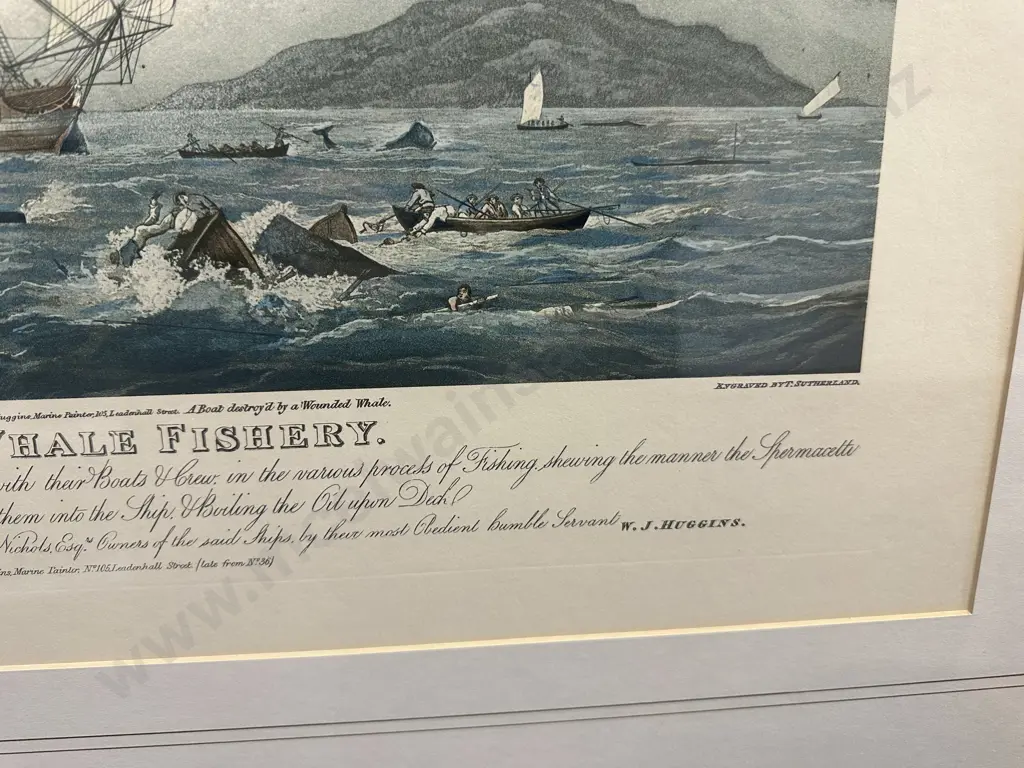 Huggins, Marine Painter, 105, Leadenhall Street. A Boat destroy'd by a Wounded Whale.
ENGRAVED BY T. SUTHERLAND.
WHALE FISHERY.
with their Boats & Crew, in the various process of Fishing, shewing the manner the Spermacetti
them into the Ship, & Boiling the Oil upon Deck
Nichols, Esqrs. Owners of the said Ships, by their most Obedient humble Servant W. J. HUGGINS.
ins, Marine Painter, No. 105, Leadenhall Street. (late from No. 36)